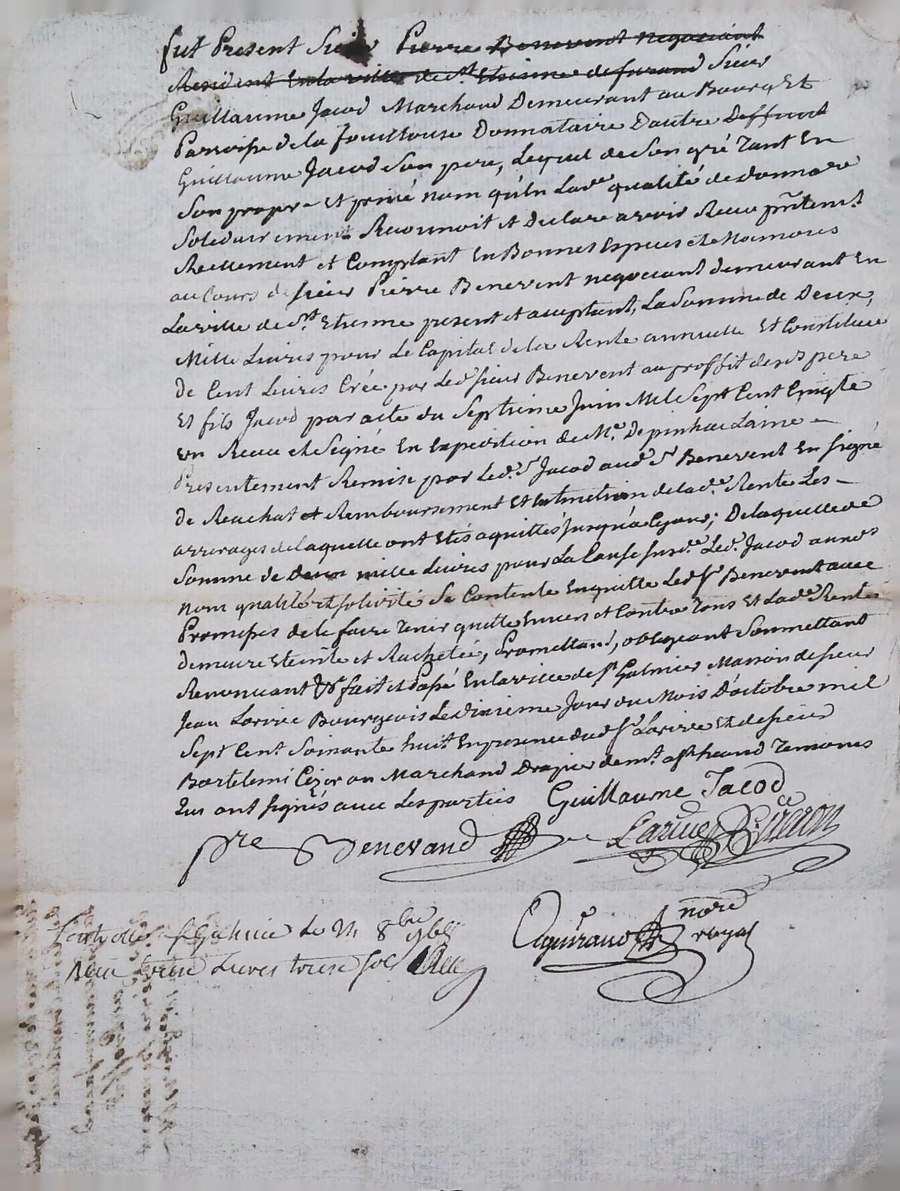 fut Present Sieur Pierre Benevent negociant
Resident En la ville de St Etienne de furand Sieur
Guillaume Jacod Marchand Demeurant au Bourg Et
Parroisse de la Fouillouse Donnataire Dautre Deffunt
Guillaume Jacod Son pere, Lequel de Son gré Tant En
Son propre et privé nom qu'En Lade qualité de donnare
Solidairement Reconnoit et Declare avoir Receu pntemt
Reellement et Comptant En Bonnes Especes et Monnoies
au Cours de sieur Pierre Benevent negociant demeurant En
La ville de St Etienne present et aceptant, La Somme de Deux
Mille Livres pour Le Capital de la Rente annuelle Et Constituée
De Cent Livres Crée par Led sieur Benevent au proffit desds pere
Et fils Jacod par acte du Septieme Juin Mil Sept Cent Cinqte
un Receu et Signé En Expedition de Me Depinhac Laine
Presentement Remise par Led. Sr Jacod aud. Sr Benevent En Signe
De Reachat et Remboursement Et Extinction de lade Rente Les
arrerages de laquelle ont Etés aquittés Jusqu'a Ce jour; De laquelle de
Somme de deux mille Livres pour La Cause susde Led. Jacod auxds
nom qualité et solidité Se Contente En quitte Led Sr Benevent avec
Promesses de le faire Tenir quitte Envers et Contre Tous Et Lade Rente
demeure Eteinte et Rachetée, Promettant, obligeant Soumettant
Renonçant &c fait et Passé En la ville de St Galmier Maison de sieur
Jean Larive Bourgeois Le dixieme Jour du Mois D'octobre mil
Sept Cent Soixante huit En presence dud Sr Larive Et de sieur
Bartelemi Marchand Drapier Temoins
Qui ont Signés avec Les parties Guillaume Jacod
pre Benevand Larive
St Galmier Le 8bre 1768
Receu treize Livres treize sols
nore royal